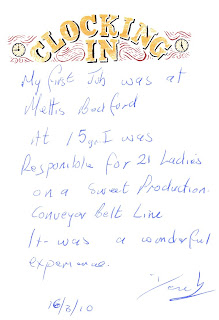 CLOCKING
IN
My first Job was at
Mettis Bedford
At 15yrs I was
Responsible for 21 Ladies
on a Sweet Production
Conveyor Belt Line
It was a wonderful
experience.
16/3/10